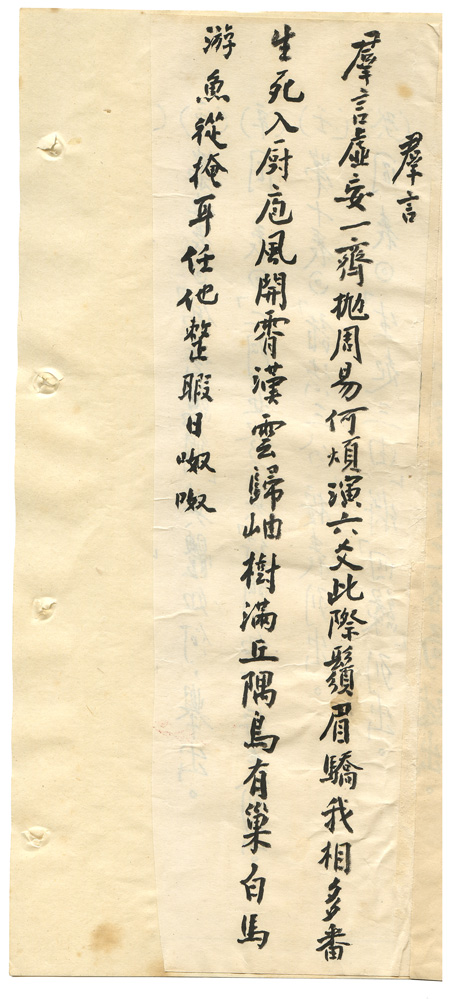 羣言
羣言虛妄一齊拋周易何煩演六爻此際鬚眉驕我相多番
生死入廚庖風開霄漢雲歸岫樹滿丘隅鳥有巢白馬
游魚從掩耳任他整暇日呶呶